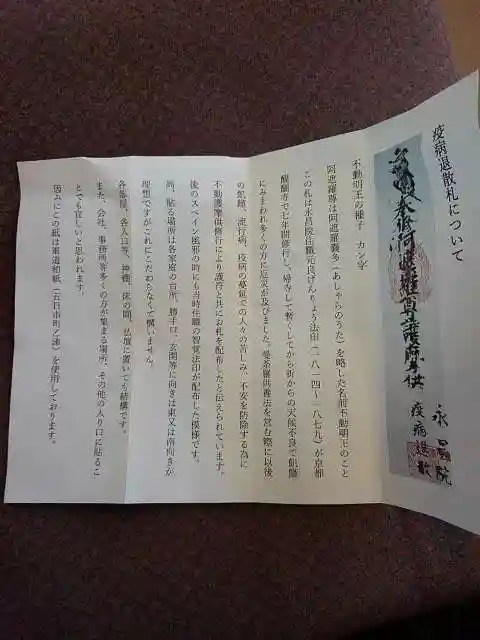 疫病退散札について
奉修阿遮羅尊護摩供
疫病退散
永昌院
不動明王の種子 カン字
阿遮羅尊は阿遮羅嚢多(あしゃらのうた)を略した名前不動明王のこと
この札は永昌院住職元良げんりょう法印(一八一四~一八七九)が京都
醍醐寺で七年間修行し、帰寺して暫くしてから折からの天候不良で飢饉
にみまわれ多くの方に厄災が及びました。曼荼羅供養法を営む際に以後
の飢饉、流行病、疫病の蔓延での人々の苦しみ、不安を防除する為に
不動護摩供修行により護符と共にお札を配布したと伝えられています。
後のスペイン風邪の時にも当時住職の智覚法印が配布した模様です。
尚、貼る場所は各家庭の台所、勝手口、玄関等に向きは東又は南向きが
理想ですがこれにこだわらなくて構いません。
各部屋、各入口等、神棚、床の間、仏壇に置いても結構です。
また、会社、事務所等多くの方が集まる場所、その他の入り口に貼るこ
とでも宜しいと思われます。
因みにこの紙は軍道和紙(五日市町乙津)を使用しております。